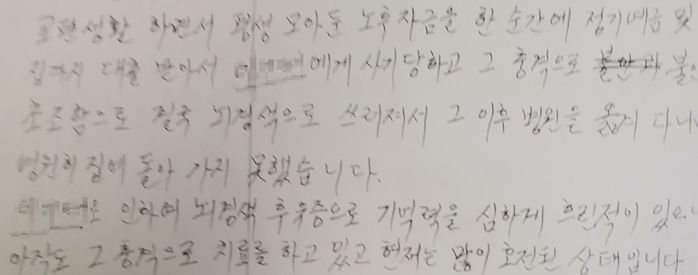 생활 하면서 평생 모아둔 노후자금을 한 순간에 정기예금 및
집까지 대출 받아서 에게 사기당하고 그 충격으로 불안과 불
초조함으로 결국 뇌경색으로 쓰러져서 그 이후 병원을 옮겨 다니
영원히 집에 돌아 가지 못했습니다.
인하여 뇌경색 후유증으로 기억력을 심하게 흐린적이 있으
아직도 그 충격으로 치료를 하고 있고 현재는 많이 호전된 상태입니다